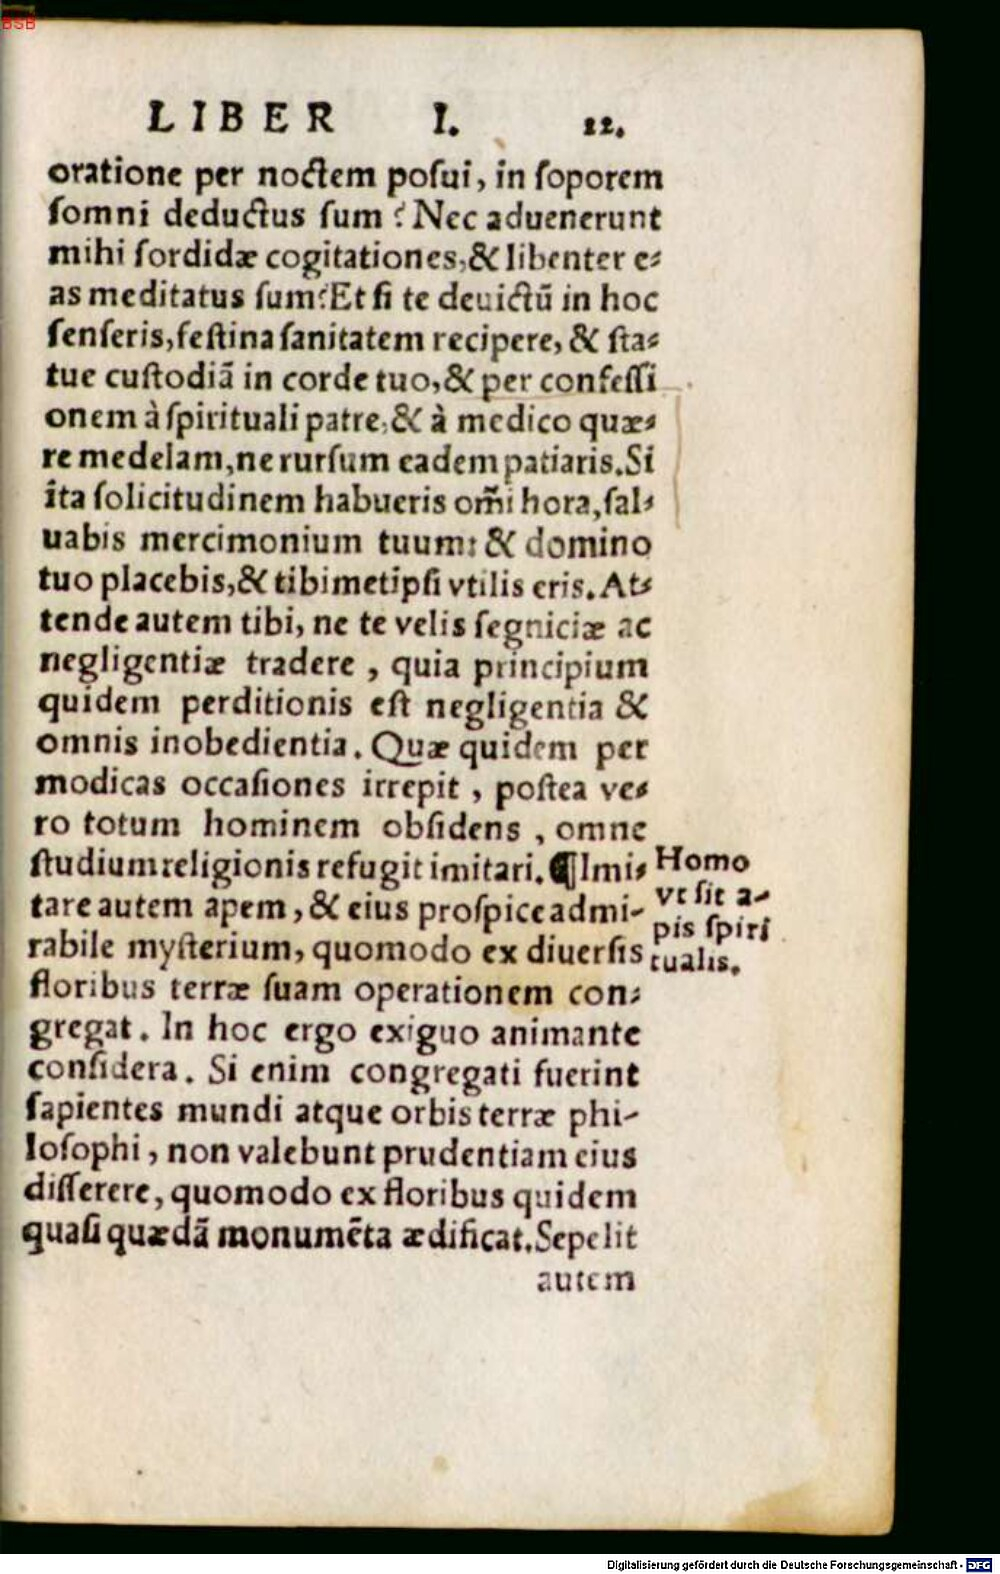 BSB
LIBER I. 22.
oratione per noctem posui, in soporem
somni deductus sum? Nec aduenerunt
mihi sordidæ cogitationes, & libenter e-
as meditatus sum? Et si te deuictū in hoc
senseris, festina sanitatem recipere, & sta-
tue custodiā in corde tuo, & per confessi
onem à spirituali patre, & à medico quæ-
re medelam, ne rursum eadem patiaris. Si
ita solicitudinem habueris om̄i hora, sal-
uabis mercimonium tuum: & domino
tuo placebis, & tibimetipsi vtilis eris. At-
tende autem tibi, ne te velis segniciæ ac
negligentiæ tradere, quia principium
quidem perditionis est negligentia &
omnis inobedientia. Quæ quidem per
modicas occasiones irrepit, postea ve-
ro totum hominem obsidens, omne
studium religionis refugit imitari. ¶ Imi-
tare autem apem, & eius prospice admi-
rabile mysterium, quomodo ex diuersis
floribus terræ suam operationem con-
gregat. In hoc ergo exiguo animante
considera. Si enim congregati fuerint
sapientes mundi atque orbis terræ phi-
losophi, non valebunt prudentiam eius
disserere, quomodo ex floribus quidem
quasi quædā monumēta ædificat. Sepelit
autem
Homo
vt sit a-
pis spiri
tualis.
Digitalisierung gefördert durch die Deutsche Forschungsgemeinschaft - DFG